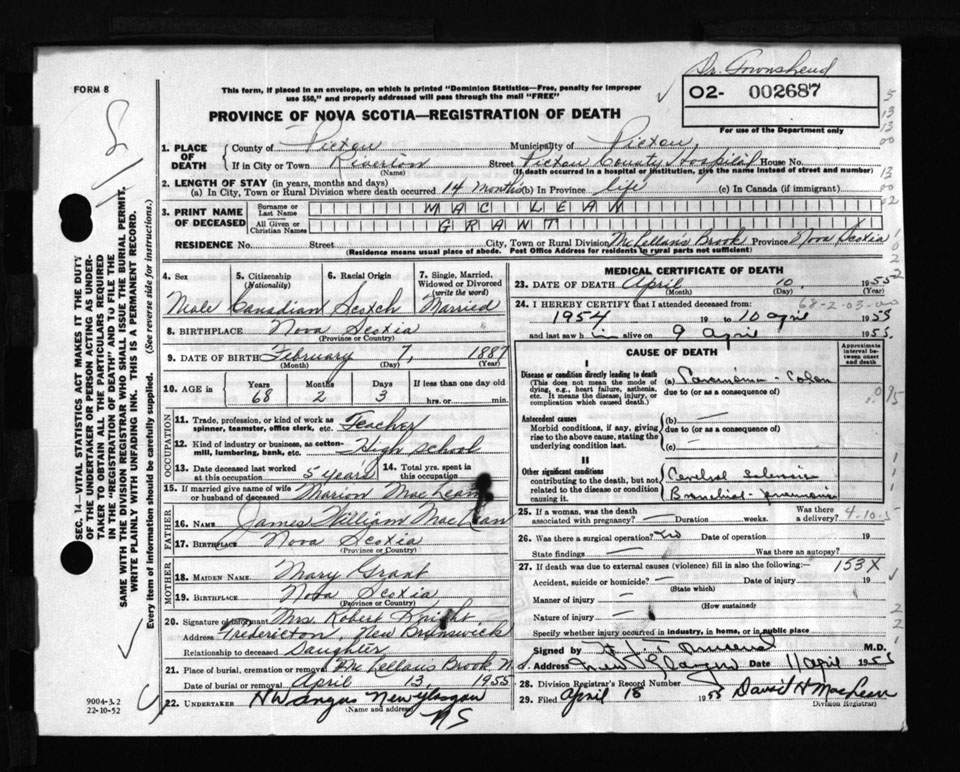 Dr. Townshend
FORM 8
This form, if placed in an envelope, on which is printed "Dominion Statistics—Free, penalty for improper
use $50," and properly addressed will pass through the mail "FREE"
O2- 002687
For use of the Department only
PROVINCE OF NOVA SCOTIA—REGISTRATION OF DEATH
1. PLACE OF DEATH County of Pictou Municipality of Pictou
If in City or Town Riverton (Name) Street Pictou County Hospital House No.
(If death occurred in a hospital or institution, give the name instead of street and number)
2. LENGTH OF STAY (in years, months and days)
(a) In City, Town or Rural Division where death occurred 14 months (b) In Province life (c) In Canada (if immigrant)
3. PRINT NAME OF DECEASED Surname or Last Name MAC LEAN
All Given or Christian Names GRANT
RESIDENCE No. Street City, Town or Rural Division McLellans Brook Province Nova Scotia
(Residence means usual place of abode. Post Office Address for residents in rural parts not sufficient)
4. Sex 5. Citizenship (Nationality) 6. Racial Origin 7. Single, Married, Widowed or Divorced (write the word)
Male Canadian Scotch Married
8. BIRTHPLACE Nova Scotia
(Province or Country)
9. DATE OF BIRTH February 7, 1887
(Month) (Day) (Year)
10. AGE in Years Months Days If less than one day old
68 2 3 hrs. or min.
OCCUPATION
11. Trade, profession, or kind of work as spinner, teamster, office clerk, etc. Teacher
12. Kind of industry or business, as cotton-mill, lumbering, bank, etc. High school
13. Date deceased last worked at this occupation 5 years 14. Total yrs. spent in this occupation
15. If married give name of wife or husband of deceased Marion MacLean
FATHER
16. NAME James William MacLean
17. BIRTHPLACE Nova Scotia
(Province or Country)
MOTHER
18. MAIDEN NAME Mary Grant
19. BIRTHPLACE Nova Scotia
(Province or Country)
20. Signature of informant Mrs. Robert Knight
Address Fredericton, New Brunswick
Relationship to deceased Daughter
21. Place of burial, cremation or removal McLellans Brook N.
Date of burial or removal April 13, 1955
22. UNDERTAKER H W Angus New Glasgow
(Name and address) NS
MEDICAL CERTIFICATE OF DEATH
23. DATE OF DEATH April 10, 1955
(Month) (Day) (Year)
68-2-03-00
24. I HEREBY CERTIFY that I attended deceased from:
1954 19 to 10 april 1955
and last saw him alive on 9 april 1955
CAUSE OF DEATH
Approximate interval between onset and death
I
Disease or condition directly leading to death (a) Carcinoma - Colon
(This does not mean the mode of dying, e.g., heart failure, asthenia, etc. It means the disease, injury, or complication which caused death.)
due to (or as a consequence of)
Antecedent causes (b) —
Morbid conditions, if any, giving rise to the above cause, stating the underlying condition last.
due to (or as a consequence of)
(c) —
II
Other significant conditions contributing to the death, but not related to the disease or condition causing it.
Cerebral sclerosis
Bronchial-pneumonia
25. If a woman, was the death associated with pregnancy? — Duration weeks. Was there a delivery?
4-10-5
26. Was there a surgical operation? No Date of operation 19
State findings — Was there an autopsy?
27. If death was due to external causes (violence) fill in also the following:— 153X
Accident, suicide or homicide? — Date of injury 19
(State which)
Manner of injury —
(How sustained)
Nature of injury —
Specify whether injury occurred in industry, in home, or in public place
Signed by M.D.
Address New Glasgow Date 11 april 1955
28. Division Registrar's Record Number
29. Filed April 15 1955 David H MacLean
Division Registrar
SEC. 14—VITAL STATISTICS ACT MAKES IT THE DUTY
OF THE UNDERTAKER OR PERSON ACTING AS UNDER-
TAKER TO OBTAIN ALL THE PARTICULARS REQUIRED
IN THE "REGISTRATION OF DEATH" AND TO FILE THE
SAME WITH THE DIVISION REGISTRAR WHO SHALL ISSUE THE BURIAL PERMIT.
WRITE PLAINLY WITH UNFADING INK. THIS IS A PERMANENT RECORD.
Every item of information should be carefully supplied. (See reverse side for instructions.)
9004-3.2
22-10-52